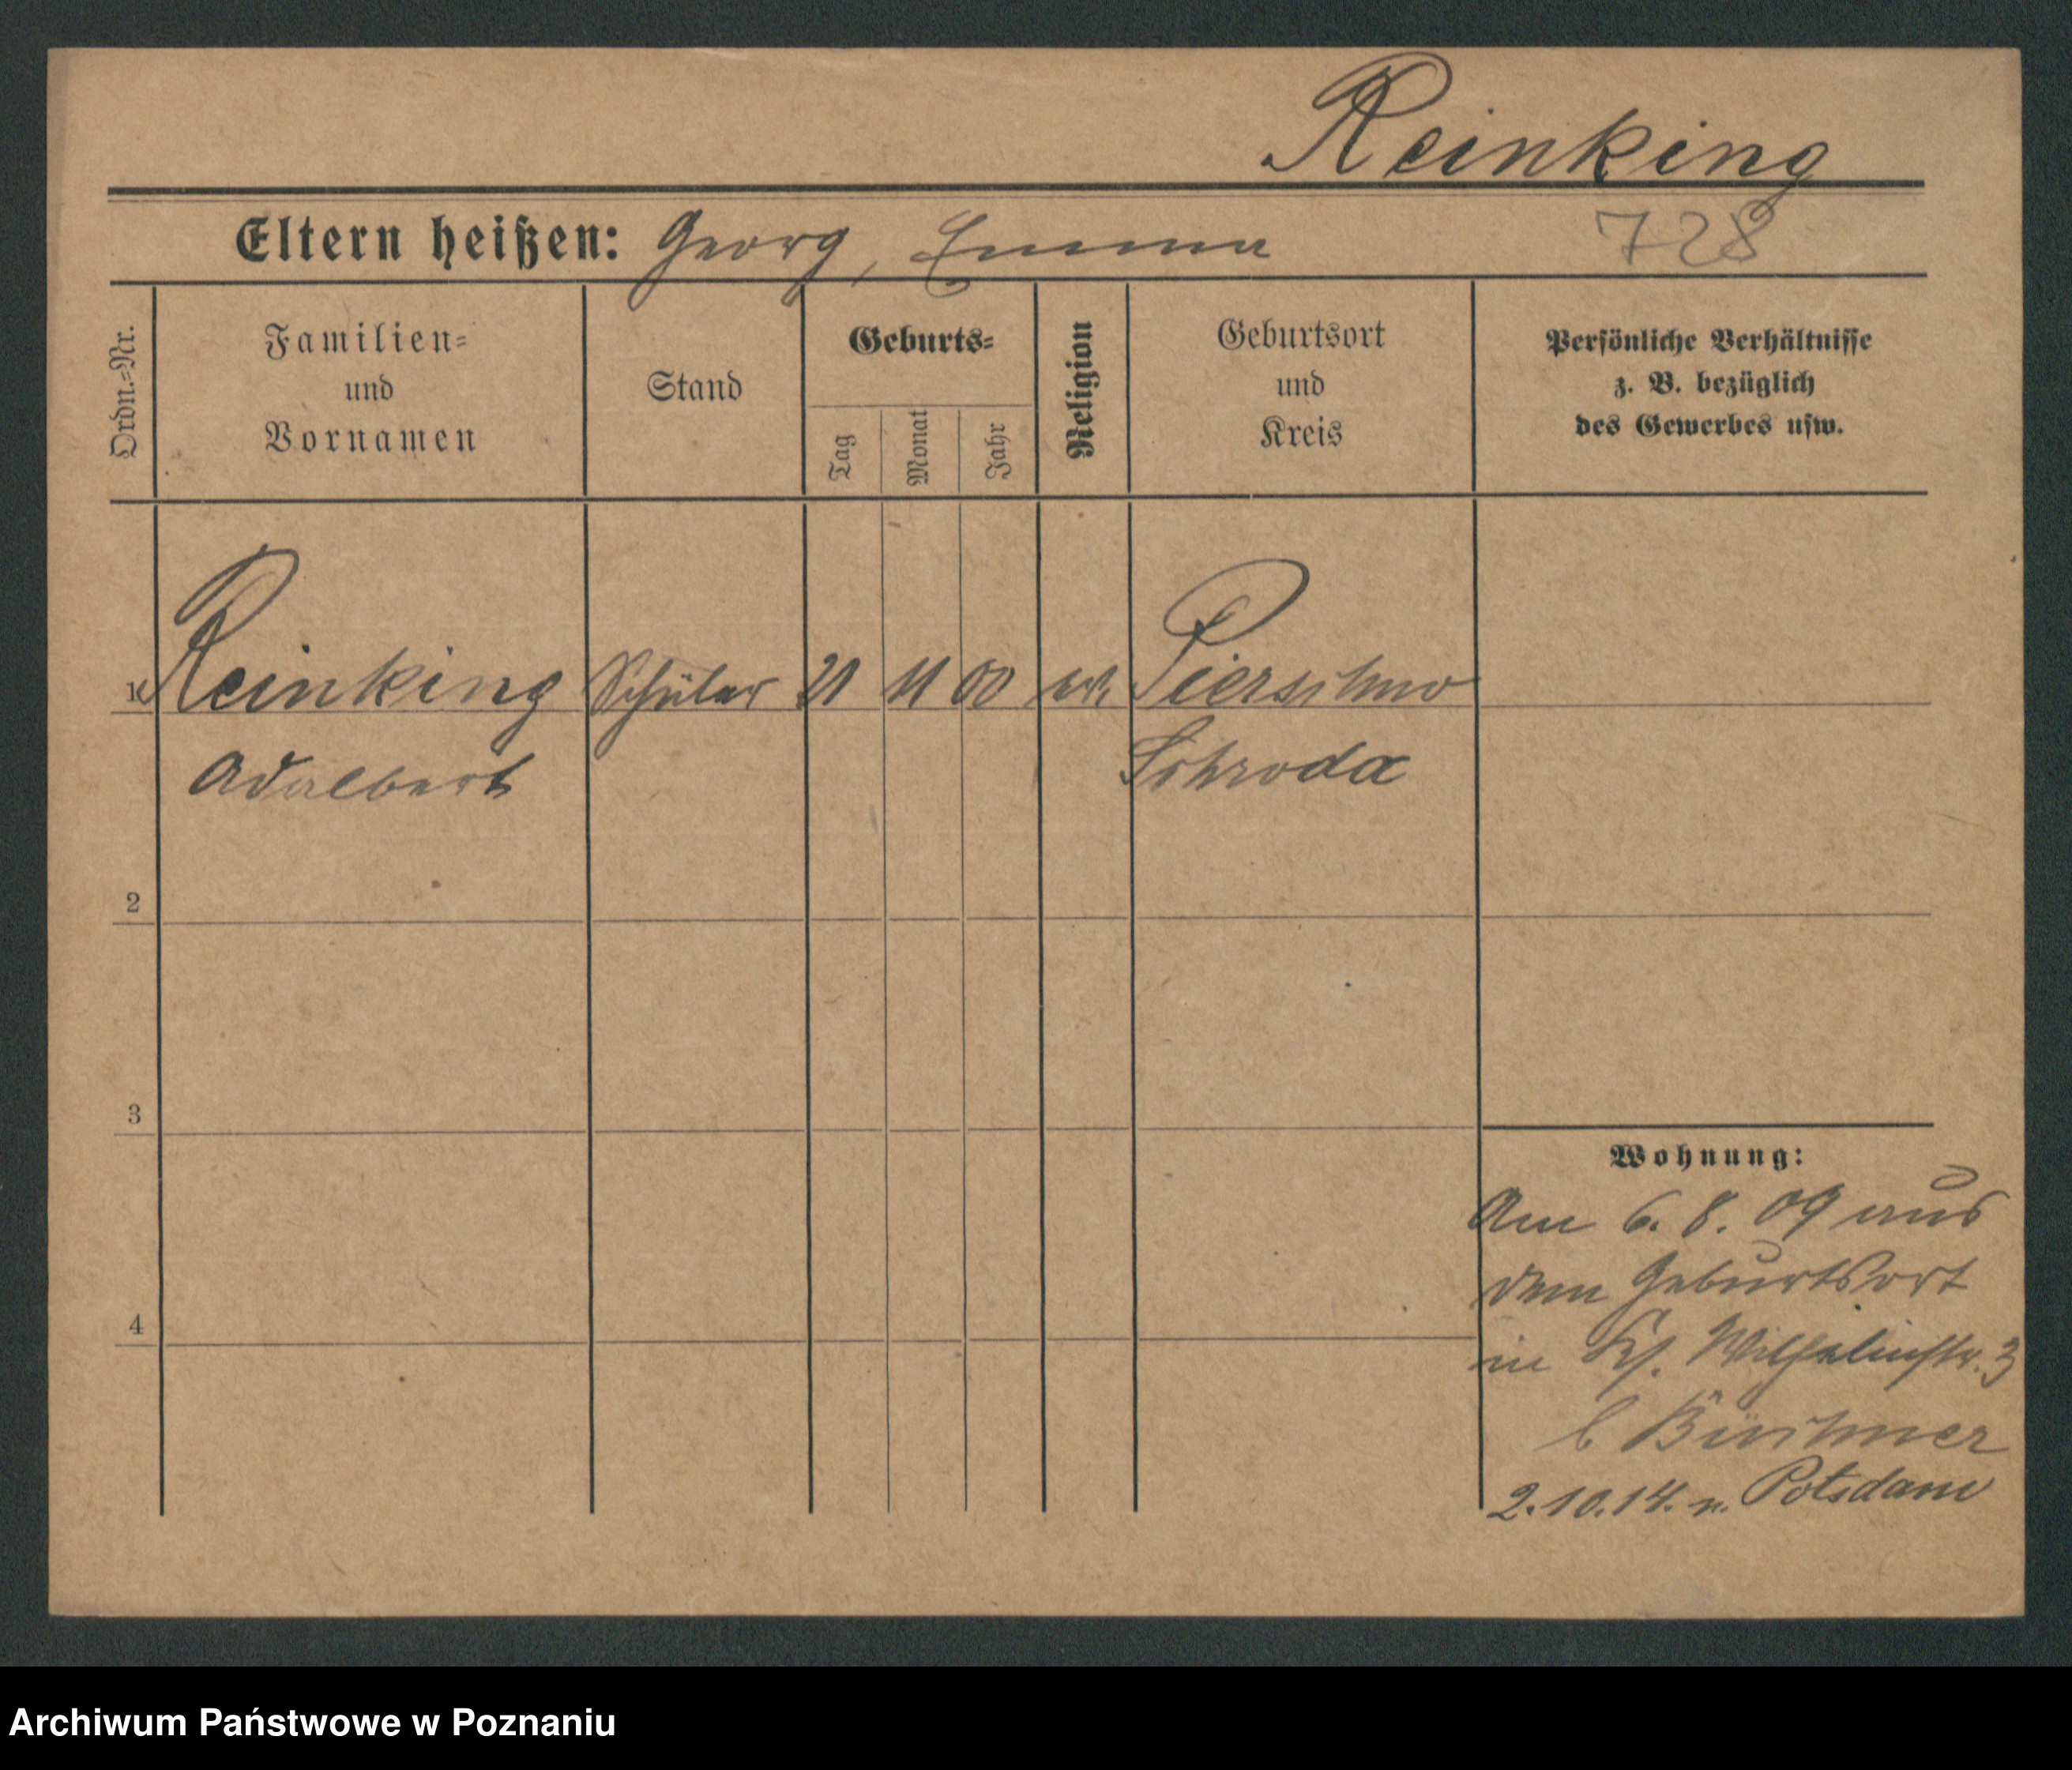 Reinking
Eltern heißen: Georg, Emma 728
Ordn.-Nr.
Familien-
und
Vornamen
Stand
Geburts-
Tag
Monat
Jahr
Religion
Geburtsort
und
Kreis
Persönliche Verhältnisse
z. B. bezüglich
des Gewerbes usw.
1 Reinking Schüler 21 11 00 ev.
Adalbert Schroda
2
3
4
Wohnung:
Am 6. 8. 09 aus
dem Geburtsort
in Wilhelmstr. 3
b Büschner
2.10.14. n. Potsdam
Archiwum Państwowe w Poznaniu